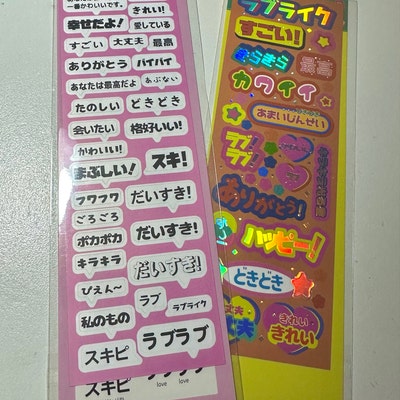 一番かわいいです。
きれい!
幸せだよ!
愛している
すごい
大丈夫
最高
ありがとう
バイバイ
あなたは最高だよ
あぶない
たのしい
どきどき
会いたい
格好いい!
かわいい!
まぶしい!
スキ!
フワフワ
だいすき!
ごろごろ
ポカポカ
だいすき!
キラキラ
だいすき!
ぴえん〜
ラブ
ラブライク
私のもの
スキピ
ラブラブ
スキピ
love
love
ラブライク
すごい!
きらきら
最高
カワイイ
あまいじんせい
ラブ!
ラブ!
ありがとう!
ハッピー!
どきどき
丈夫
丈夫
きれい
きれい